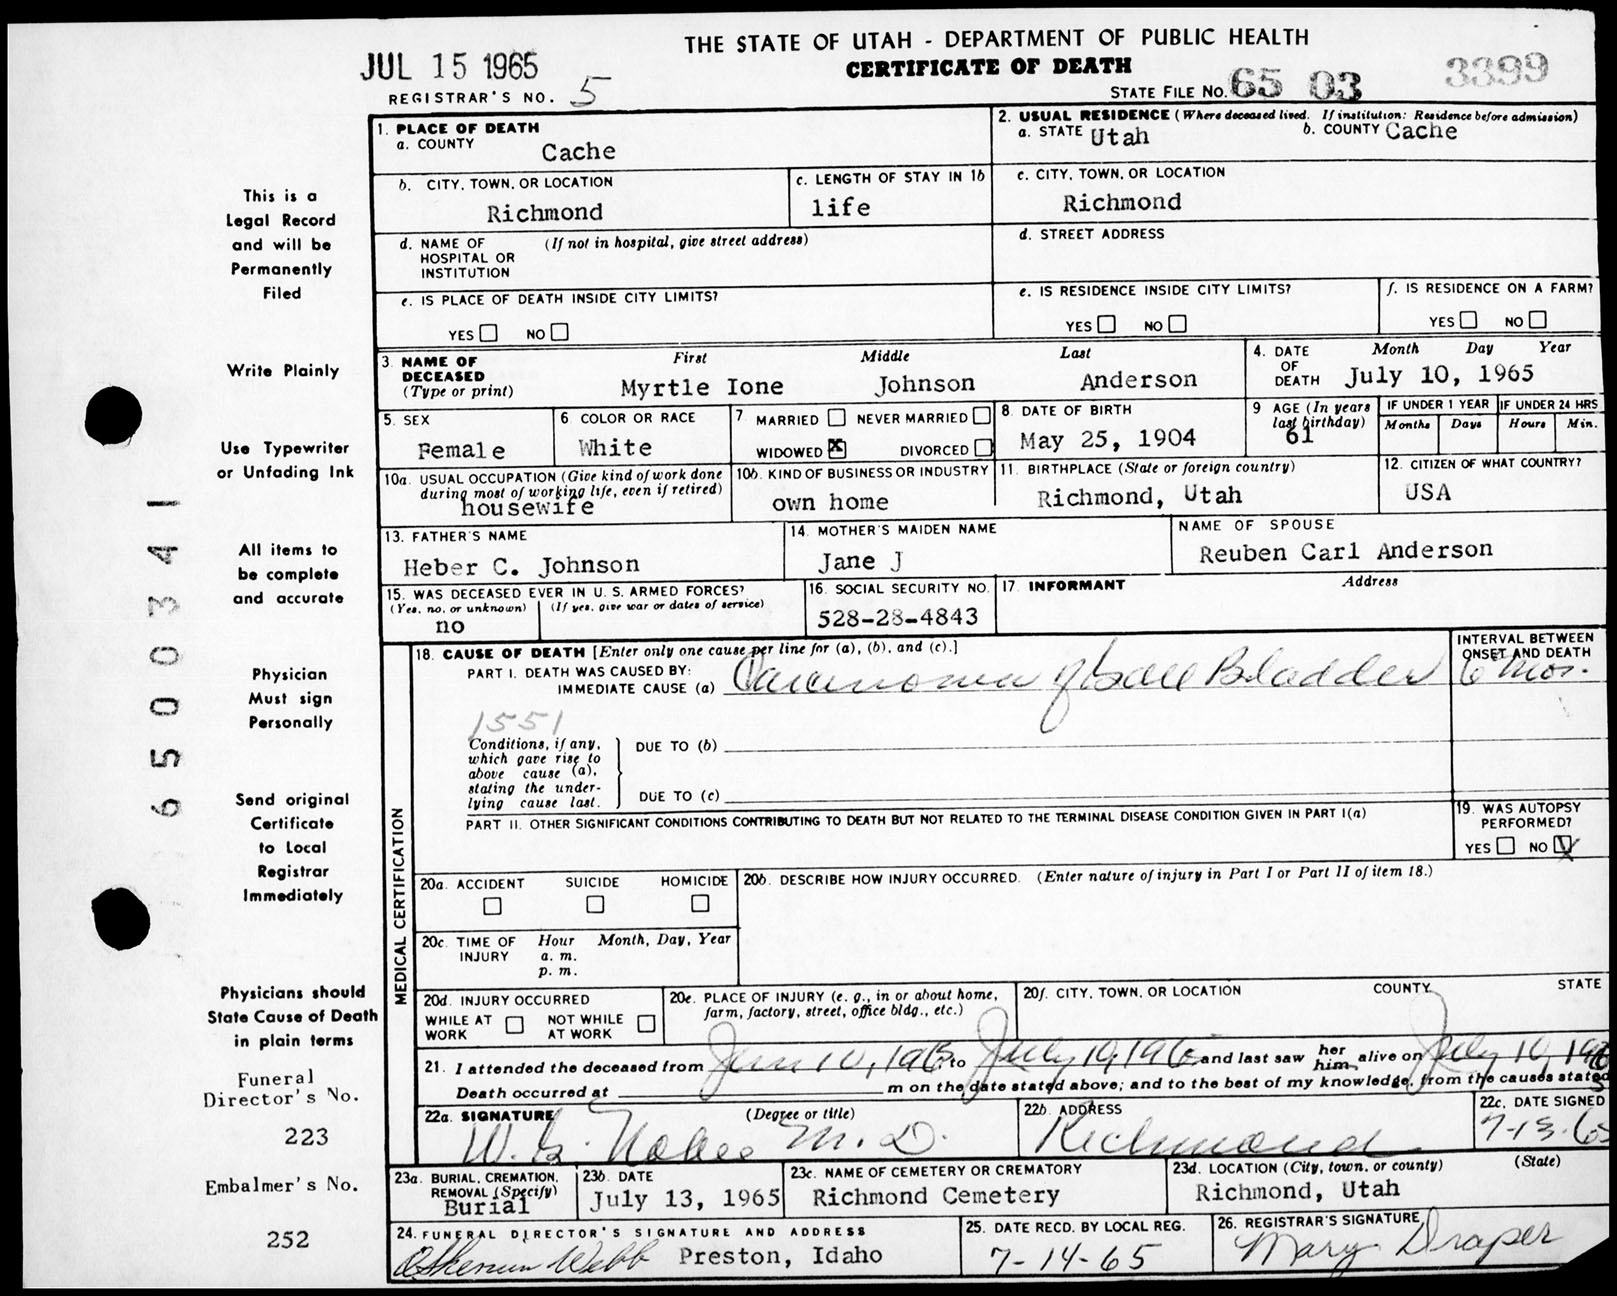 THE STATE OF UTAH - DEPARTMENT OF PUBLIC HEALTH
JUL 15 1965
CERTIFICATE OF DEATH
REGISTRAR'S NO. 5
STATE FILE NO. 65 03 3399
1. PLACE OF DEATH
a. COUNTY
Cache
2. USUAL RESIDENCE (Where deceased lived. If institution: Residence before admission)
a. STATE Utah b. COUNTY Cache
b. CITY, TOWN, OR LOCATION
Richmond
c. LENGTH OF STAY IN 1b
life
c. CITY, TOWN, OR LOCATION
Richmond
d. NAME OF HOSPITAL OR INSTITUTION (If not in hospital, give street address)
d. STREET ADDRESS
e. IS PLACE OF DEATH INSIDE CITY LIMITS?
YES NO
e. IS RESIDENCE INSIDE CITY LIMITS?
YES NO
f. IS RESIDENCE ON A FARM?
YES NO
3. NAME OF DECEASED (Type or print)
First Middle Last
Myrtle Ione Johnson Anderson
4. DATE OF DEATH
Month Day Year
July 10, 1965
5. SEX
Female
6. COLOR OR RACE
White
7. MARRIED NEVER MARRIED
WIDOWED X DIVORCED
8. DATE OF BIRTH
May 25, 1904
9. AGE (In years last birthday)
61
IF UNDER 1 YEAR
Months Days
IF UNDER 24 HRS
Hours Min.
10a. USUAL OCCUPATION (Give kind of work done during most of working life, even if retired)
housewife
10b. KIND OF BUSINESS OR INDUSTRY
own home
11. BIRTHPLACE (State or foreign country)
Richmond, Utah
12. CITIZEN OF WHAT COUNTRY?
USA
13. FATHER'S NAME
Heber C. Johnson
14. MOTHER'S MAIDEN NAME
Jane J
NAME OF SPOUSE
Reuben Carl Anderson
15. WAS DECEASED EVER IN U. S. ARMED FORCES?
(Yes, no, or unknown) (If yes, give war or dates of service)
no
16. SOCIAL SECURITY NO.
528-28-4843
17. INFORMANT Address
MEDICAL CERTIFICATION
18. CAUSE OF DEATH [Enter only one cause per line for (a), (b), and (c).]
INTERVAL BETWEEN ONSET AND DEATH
PART I. DEATH WAS CAUSED BY:
IMMEDIATE CAUSE (a) Carcinoma of Gall Bladder 6 mos.
1551
Conditions, if any, which gave rise to above cause (a), stating the underlying cause last.
DUE TO (b)
DUE TO (c)
PART II. OTHER SIGNIFICANT CONDITIONS CONTRIBUTING TO DEATH BUT NOT RELATED TO THE TERMINAL DISEASE CONDITION GIVEN IN PART I(a)
19. WAS AUTOPSY PERFORMED?
YES NO X
20a. ACCIDENT SUICIDE HOMICIDE
20b. DESCRIBE HOW INJURY OCCURRED. (Enter nature of injury in Part I or Part II of item 18.)
20c. TIME OF INJURY
Hour Month, Day, Year
a. m.
p. m.
20d. INJURY OCCURRED
WHILE AT WORK NOT WHILE AT WORK
20e. PLACE OF INJURY (e. g., in or about home, farm, factory, street, office bldg., etc.)
20f. CITY, TOWN, OR LOCATION COUNTY STATE
21. I attended the deceased from 10, 1965 to July 10, 196 and last saw her him alive on July 10, 1965
Death occurred at m on the date stated above; and to the best of my knowledge, from the causes stated
22a. SIGNATURE (Degree or title)
W. M. D.
22b. ADDRESS
Richmond
22c. DATE SIGNED
7-13-65
23a. BURIAL, CREMATION, REMOVAL (Specify)
Burial
23b. DATE
July 13, 1965
23c. NAME OF CEMETERY OR CREMATORY
Richmond Cemetery
23d. LOCATION (City, town, or county) (State)
Richmond, Utah
24. FUNERAL DIRECTOR'S SIGNATURE AND ADDRESS
Webb Preston, Idaho
25. DATE RECD. BY LOCAL REG.
7-14-65
26. REGISTRAR'S SIGNATURE
Mary Draper
This is a
Legal Record
and will be
Permanently
Filed
Write Plainly
Use Typewriter
or Unfading Ink
All items to
be complete
and accurate
Physician
Must sign
Personally
Send original
Certificate
to Local
Registrar
Immediately
Physicians should
State Cause of Death
in plain terms
Funeral
Director's No.
223
Embalmer's No.
252
6500341